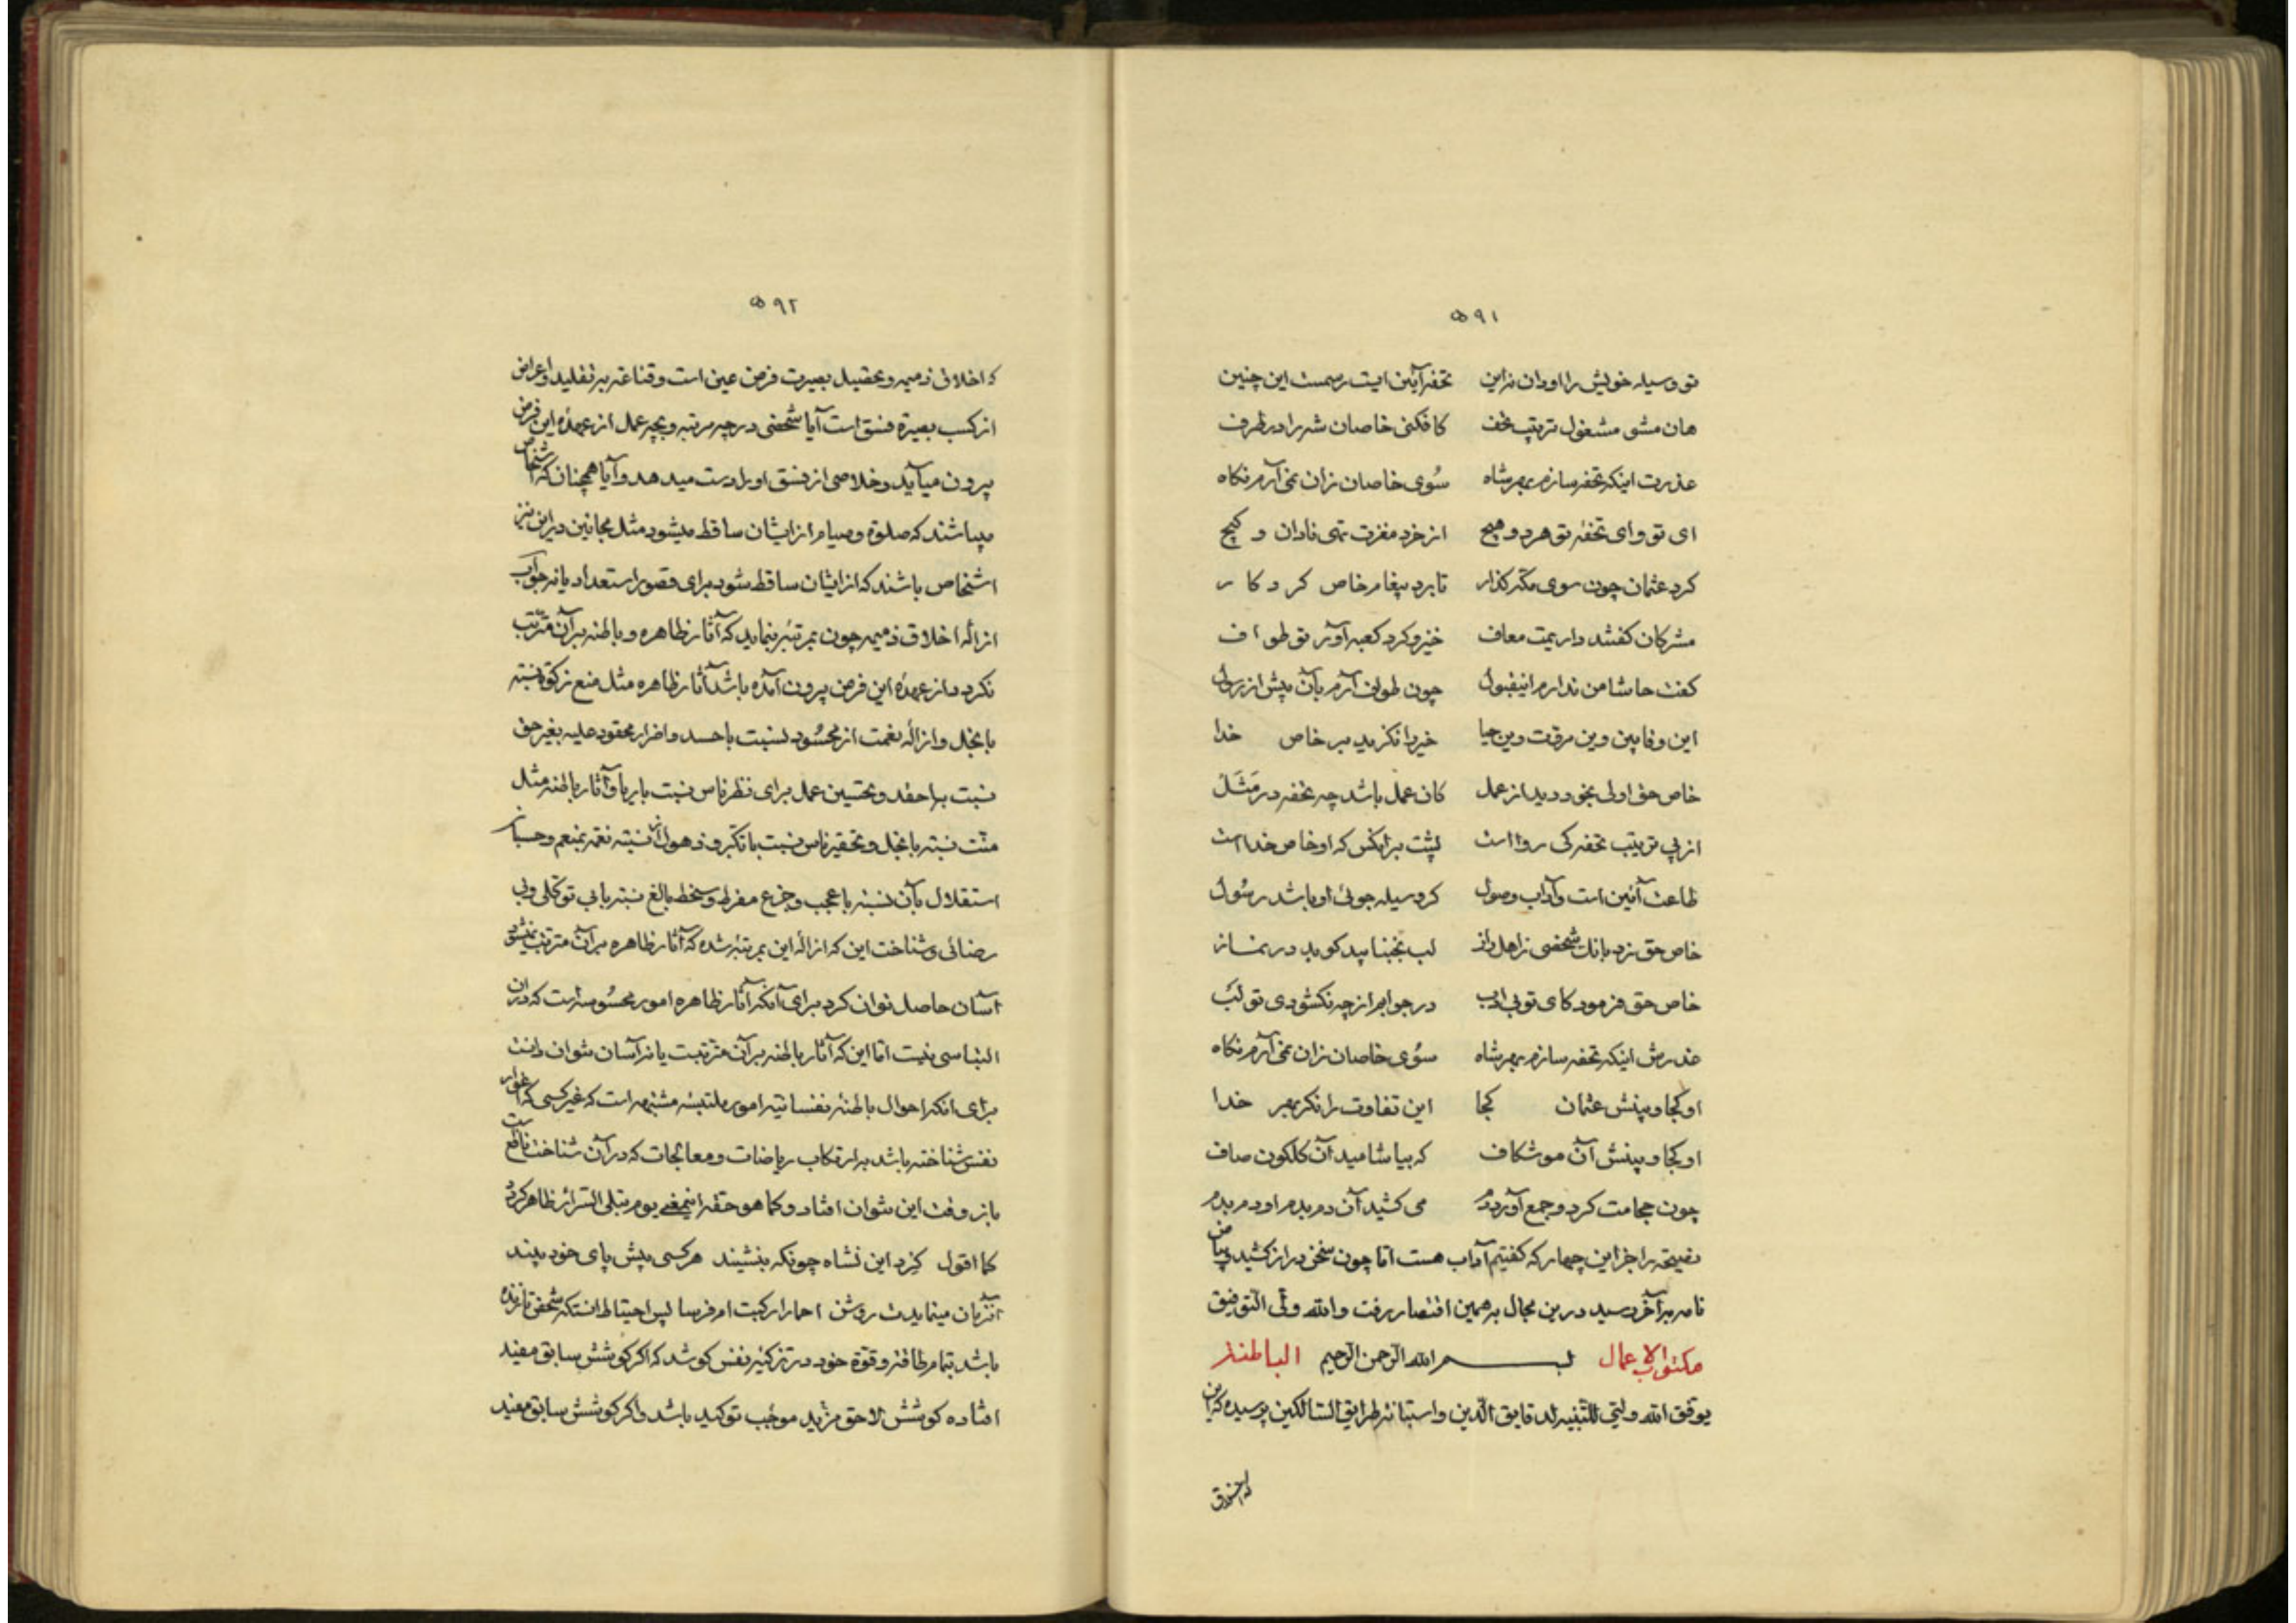 ۵۹۱
تو وسیله خویش را او دان نه این تحفه آیین ایت رسمست این چنین
هان مشو مشغول ترتیب تحف کافکنی خاصان شه را در طرف
عذرت اینکه تحفه سازم بهر شاه سُوی خاصان زان نمی آرم نکاه
ای تو وای تحفهٔ تو هر دو هیچ از خرد مغزت تهی نادان و کیچ
کرد عثمان چون سوی مکه کذار تا برد پیغام خاص کردکار
مشرکان کفتند داریمت معاف خیز و کرد کعبه آور تو طواف
کفت حاشا من ندارم این قبول چون طواف آرم بآن پیش از رسول
این وفا بین وین مروت وین حیا خیره انکزید بر خاص خدا
خاص حق اولی بخود دید از عمل کان عمل باشد چه تحفه در مَثَل
از پی ترتیب تحفه کی روا است پشت بر انکس که او خاص خدا است
طاعت آئین است وآداب وصول کر وسیله جوئی او باشد رسُول
خاص حق زد بانك شخصی ز اهل راز لب نجنبانید کو بد در نماز
خاص حق فرمود کای تو بی ادب در جوابم از چه نکشودی تو لب
عذرش اینکه تحفه سازم بهر شاه سوُی خاصان زان نمی آرم نکاه
او کجا و بینش عثمان کجا این تفاوت را نکر بهر خدا
او کجا و بینش آن موشکاف که بیاشامید آن کلکون صاف
چون حجامت کرد و جمع آورد دم می کشید آن دم بدم او دم بدم
نصیحة را جز این چهار که کفتیم آداب هست امّا چون سخن دراز کشید بیاض
نامه بر آخر رسید درین مجال بر همین اقتصار رفت والله ولّی التوفیق
مکتوب الاعمال بسم الله الرّحمن الرّحیم الباطنة
یوفق الله ولیّی للتّنبه لدقایق الدّین واستبانة طرایق السّالکین پرسیده که این
له اخلاق
۵۹۲
که اخلاق ذمیمه و تحصیل بصیرت فرض عین است و قناعة بر تقلید و اعراض
از کسب بصیرة فسق است آیا شخصی در چه مرتبه و بچه عمل از عهدهٔ این فرض
بیرون میآید و خلاصی از فسق او را دست میدهد و آیا همچنان که اشخاص
میباشند که صلوة و صیام از ایشان ساقط میشود مثل مجانین در این نیز
اشخاص باشند که از ایشان ساقط شود برای قصور استعداد یا نه جواب
ازالهٔ اخلاق ذمیمه چون بمرتبهٔ بنماید که آثار ظاهره و باطنه بر آن مترتّب
نکردد از عهدهٔ این فرض بیرون آمده باشد آثار ظاهره مثل منع زکوة نسبة
با بخل و ازالهٔ نغمت از محسُود نسبت با حسد و اضرار محقود علیه بغیر حق
نسبت با حقد و تحسین عمل برای نظر ناس نسبت با ریا و آثار باطنه مثل
منّت نسبة با بخل و تحقیر ناس نسبت با تکبّر و ذهول از نسبة نعمة بمنعم و حسبان
استقلال بآن نسبة با عجب و جزع مفرط و سخط بالغ نسبة با بی توکلی و بی
رضائی و شناخت این که ازالهٔ این بمرتبهٔ شده که آثار ظاهره بر آن مترتب نمیشود
آسان حاصل توان کرد برای آنکه آثار ظاهره امور محسُوسه است که در آن
التباسی نیست امّا این که آثار باطنه بر آن مترتبت یا نه آسان نتوان دانست
برای انکه احوال باطنهٔ نفسانیّه امور ملتبسهٔ مشتبهه است که غیر کسی که اغوار
نفس شناخته باشد بارتکاب ریاضات و معالجات که در آن شناخت نافع است
باز وقت این نتوان افتاد و کما هو حقّه اینمعنی یوم تبلی السّرائر ظاهر کردد
کما اقول کرد این نشاه چونکه بنشیند هر کسی پیش پای خود بیند
آنزمان مینمایدت روشن احمارا رکبت ام فرسا پس احتیاط انستکه شخص تا زنده
باشد بتمام طاقة و قوّة خود در تزکیهٔ نفس کوشد که اکر کوشش سابق مفید
افتاده کوشش لاحق مزید موجب توکید باشد و اکر کوشش سابق مفید